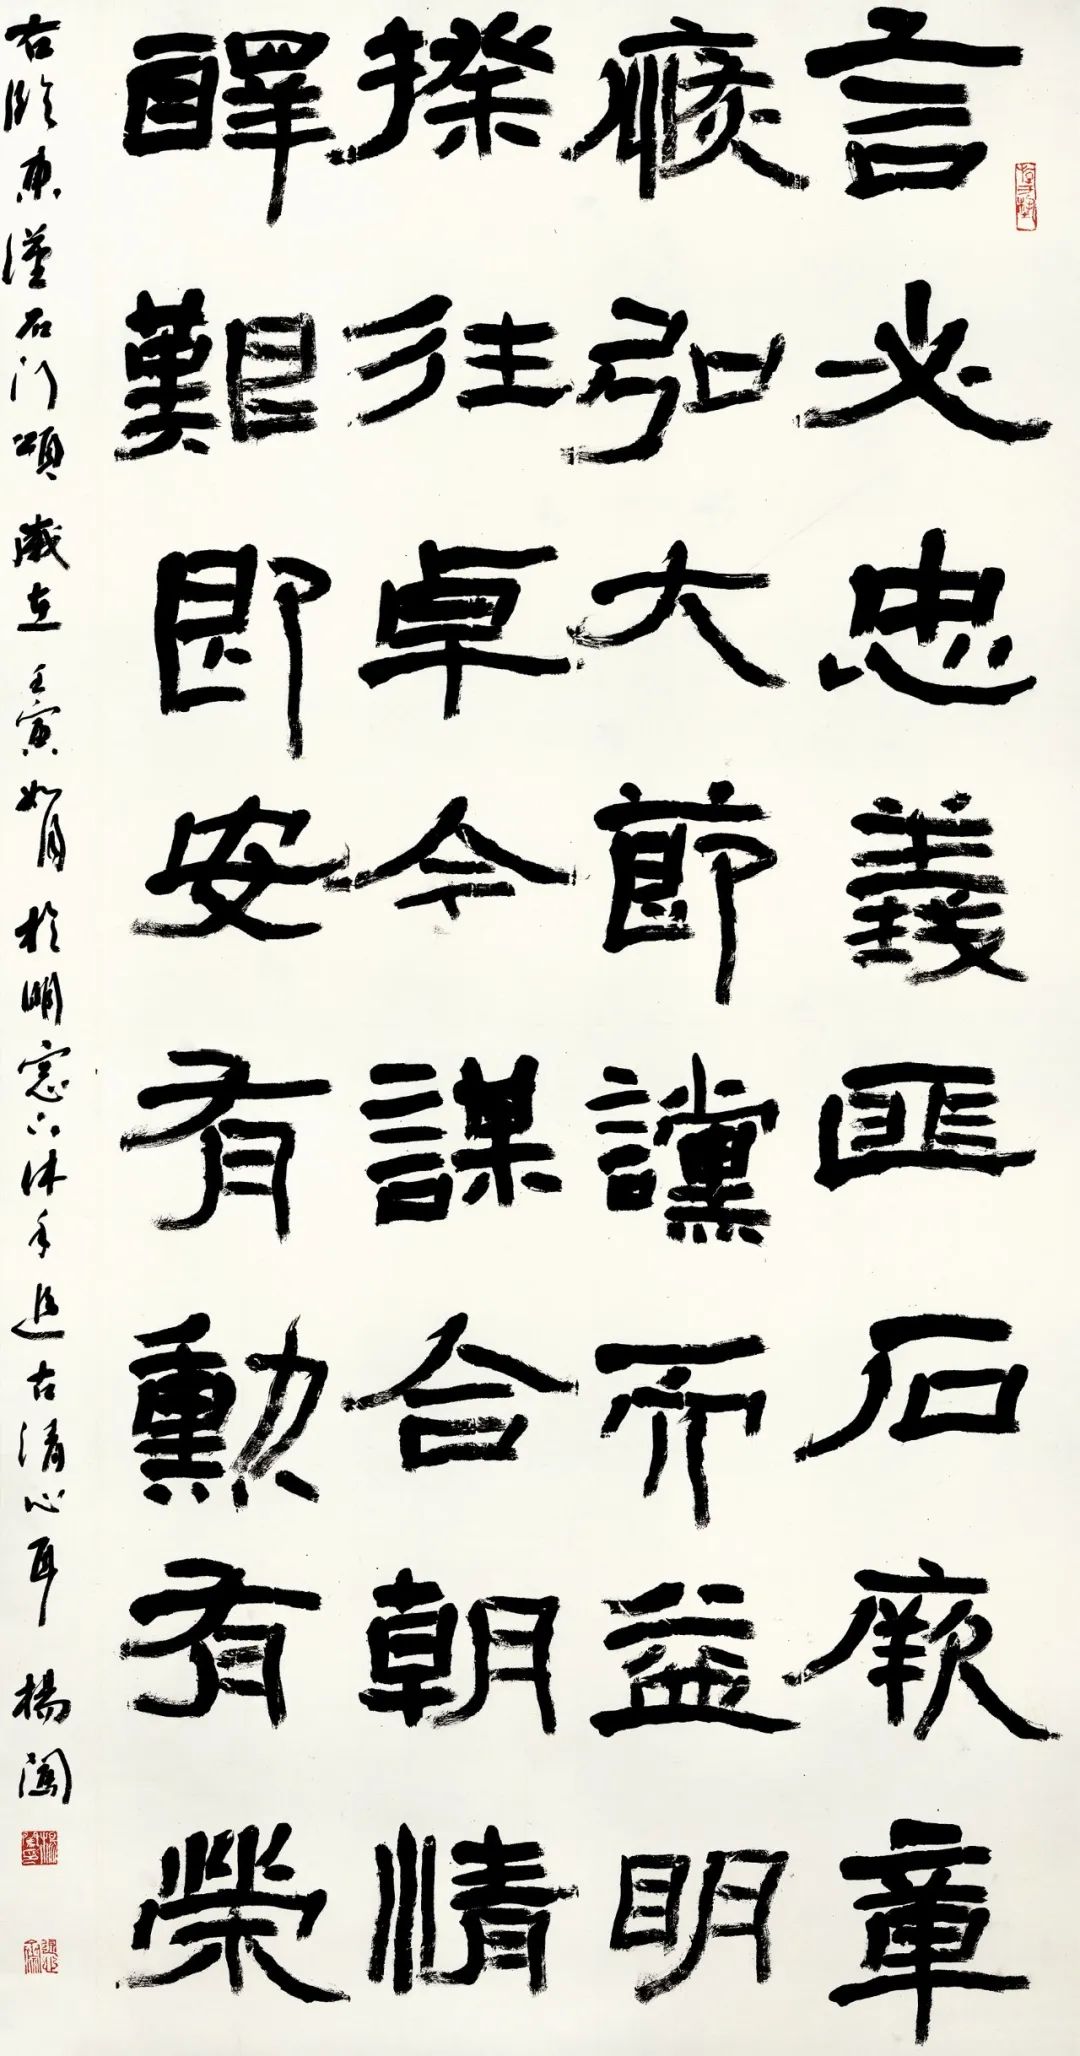 言必忠義匪石厥章
恢弘大節讜而益明
揆往卓今謀合朝情
醳艱即安有勳有榮
右臨東漢石門頌歲在壬寅如月於明窓下沐手追古清心耳楊